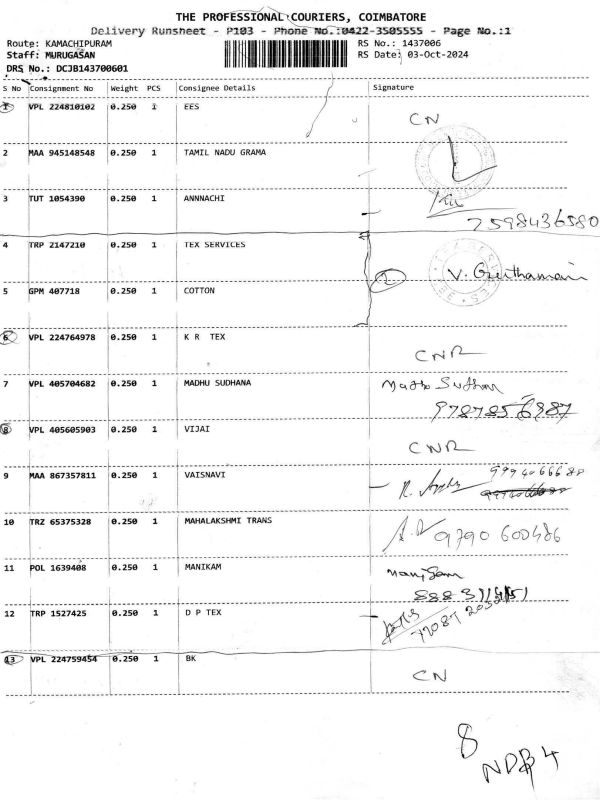 THE PROFESSIONAL COURIERS, COIMBATORE
Delivery Runsheet - P103 - Phone No.:0422-3505555 - Page No.:1
Route: KAMACHIPURAM RS No.: 1437006
Staff: MURUGASAN RS Date: 03-Oct-2024
DRS No.: DCJB143700601
S No Consignment No Weight PCS Consignee Details Signature
1 VPL 224810102 0.250 1 EES CN
2 MAA 945148548 0.250 1 TAMIL NADU GRAMA
3 TUT 1054390 0.250 1 ANNNACHI
7598436580
4 TRP 2147210 0.250 1 TEX SERVICES
2 V.
5 GPM 407718 0.250 1 COTTON
6 VPL 224764978 0.250 1 K R TEX
CNR
7 VPL 405704682 0.250 1 MADHU SUDHANA
9787856987
8 VPL 405605903 0.250 1 VIJAI
CNR
9 MAA 867357811 0.250 1 VAISNAVI
10 TRZ 65375328 0.250 1 MAHALAKSHMI TRANS
9790 600486
11 POL 1639408 0.250 1 MANIKAM
12 TRP 1527425 0.250 1 D P TEX
13 VPL 224759454 0.250 1 BK
CN
8